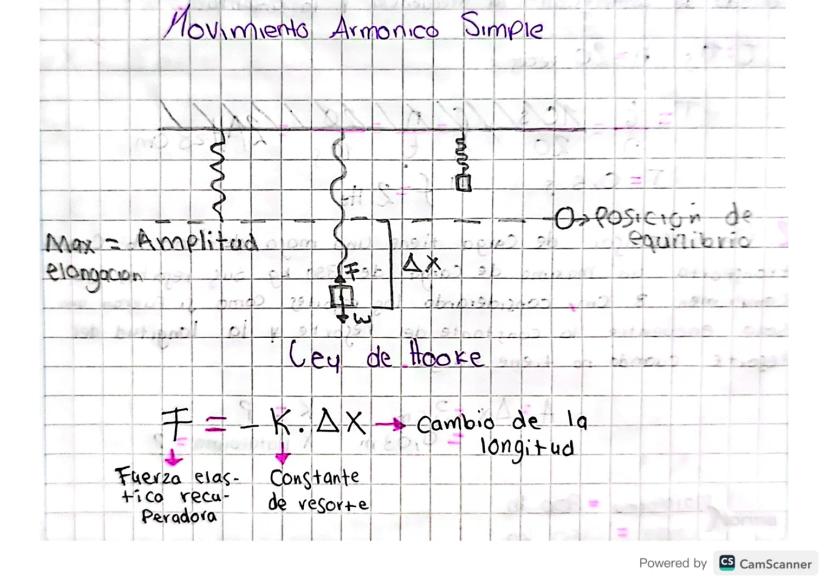 Movimiento Armonico Simple
O→ Posición de
equilibrio
Max = Amplitud
elongacion
ΔX
F
w
Ley de Hooke
F = - K . ΔX → Cambio de la
longitud
Fuerza elas-
tico recu-
Peradora
Constante
de resorte
Powered by CS CamScanner